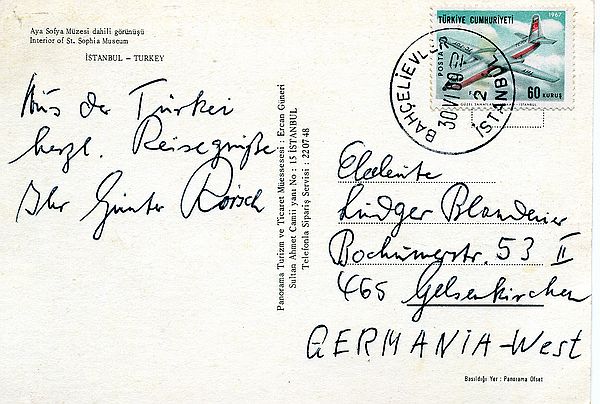 Aya Sofya Müzesi dahili görünüşü
Interior of St. Sophia Museum
İSTANBUL – TURKEY
Aus der Türkei
herzl. Reisegrüße
Ihr Günter
Panorama Turizm ve Ticaret Müessesesi : Ercan Güneri
Sultan Ahmet Camii yanı No : 15 İSTANBUL
Telefonla Sipariş Servisi : 220748
1967
TÜRKİYE CUMHURİYETİ
POSTA
60 KURUŞ
BAHÇELİEVL
İSTANBUL
Eheleute
Ludger
Bochumerstr. 53 II
465 Gelsenkirchen
GERMANIA-West
Basıldığı Yer : Panorama Ofset